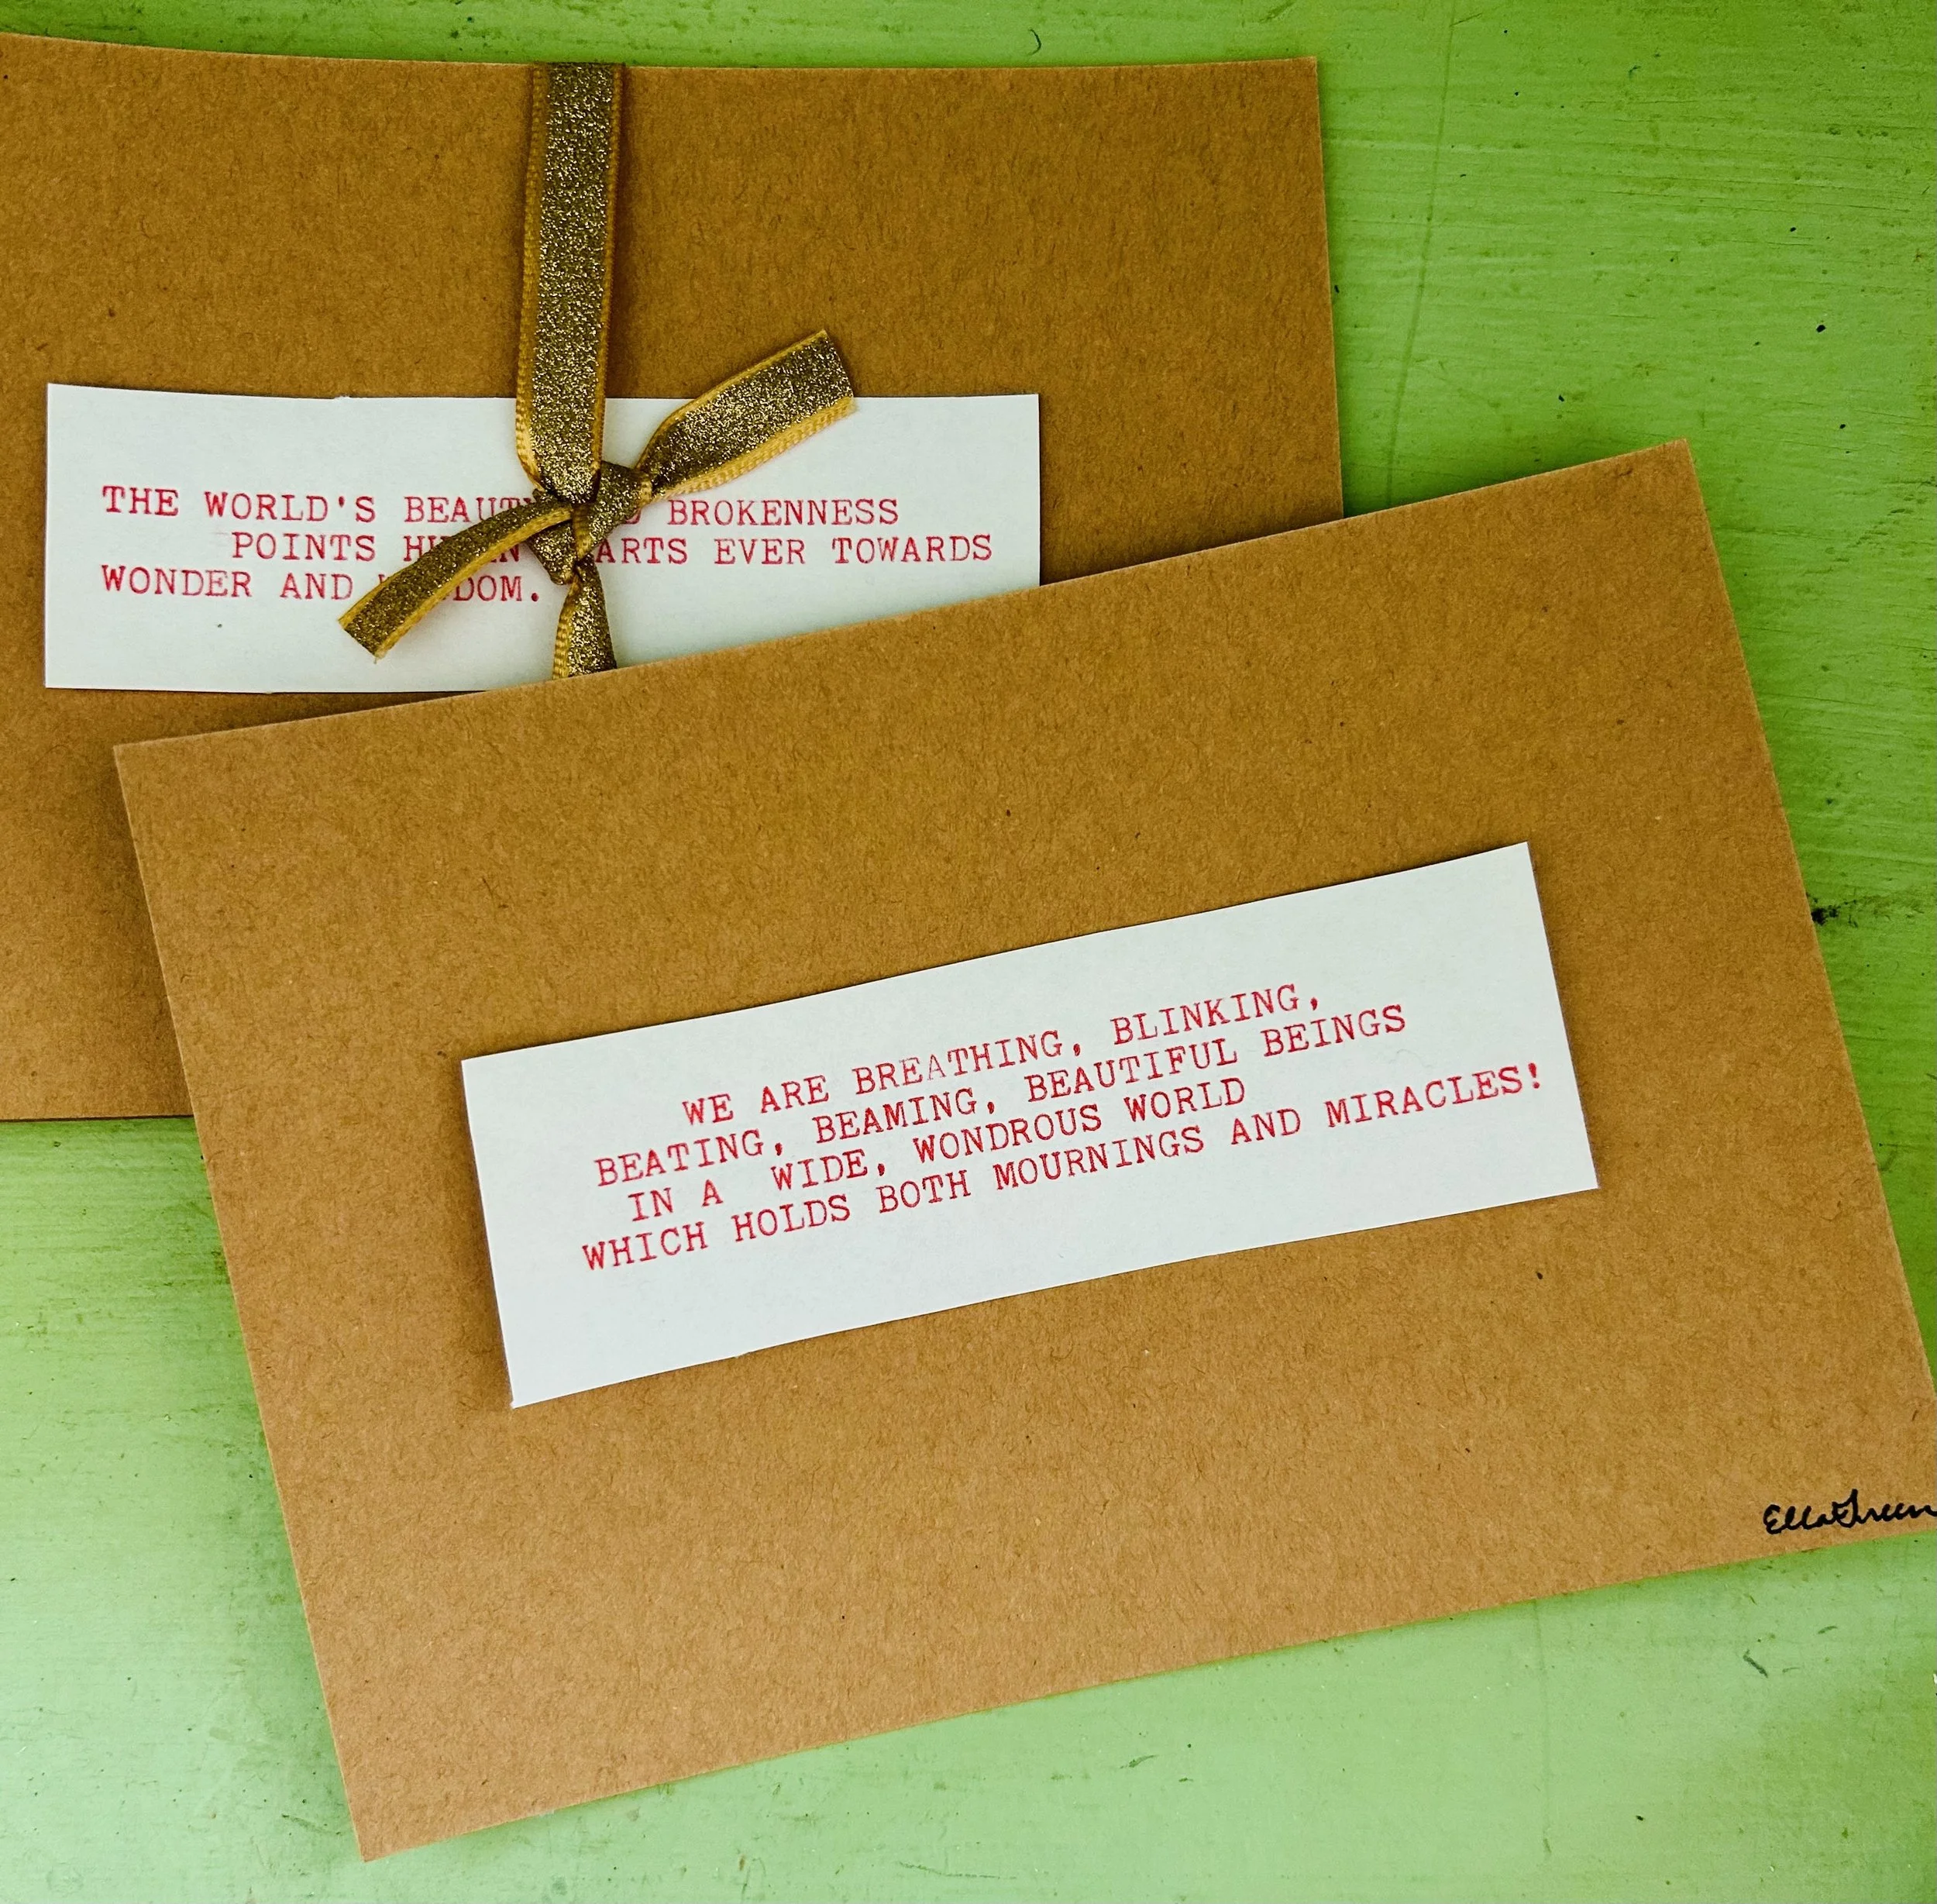 THE WORLD'S BEAUTY BROKENNESS
POINTS EVER TOWARDS
WONDER AND
WE ARE BREATHING, BLINKING,
BEATING, BEAMING, BEAUTIFUL BEINGS
IN A WIDE, WONDROUS WORLD
WHICH HOLDS BOTH MOURNINGS AND MIRACLES!
Ella Green